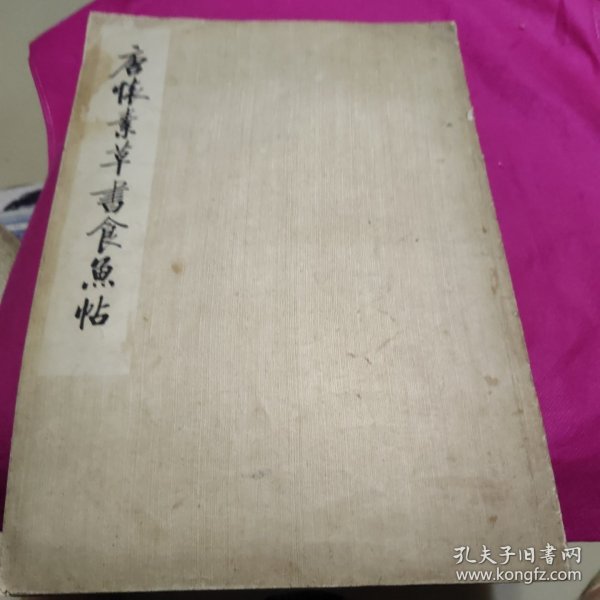 唐懷素草書食魚帖
孔夫子旧書网
www.kongfz.com